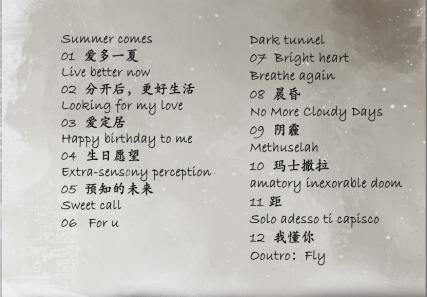 Summer comes
01 爱多一夏
Live better now
02 分开后，更好生活
Looking for my love
03 爱定居
Happy birthday to me
04 生日愿望
Extra-sensony perception
05 预知的未来
Sweet call
06 For u
Dark tunnel
07 Bright heart
Breathe again
08 晨昏
No More Cloudy Days
09 阴霾
Methuselah
10 玛士撒拉
amatory inexorable doom
11 距
Solo adesso ti capisco
12 我懂你
Ooutro：Fly